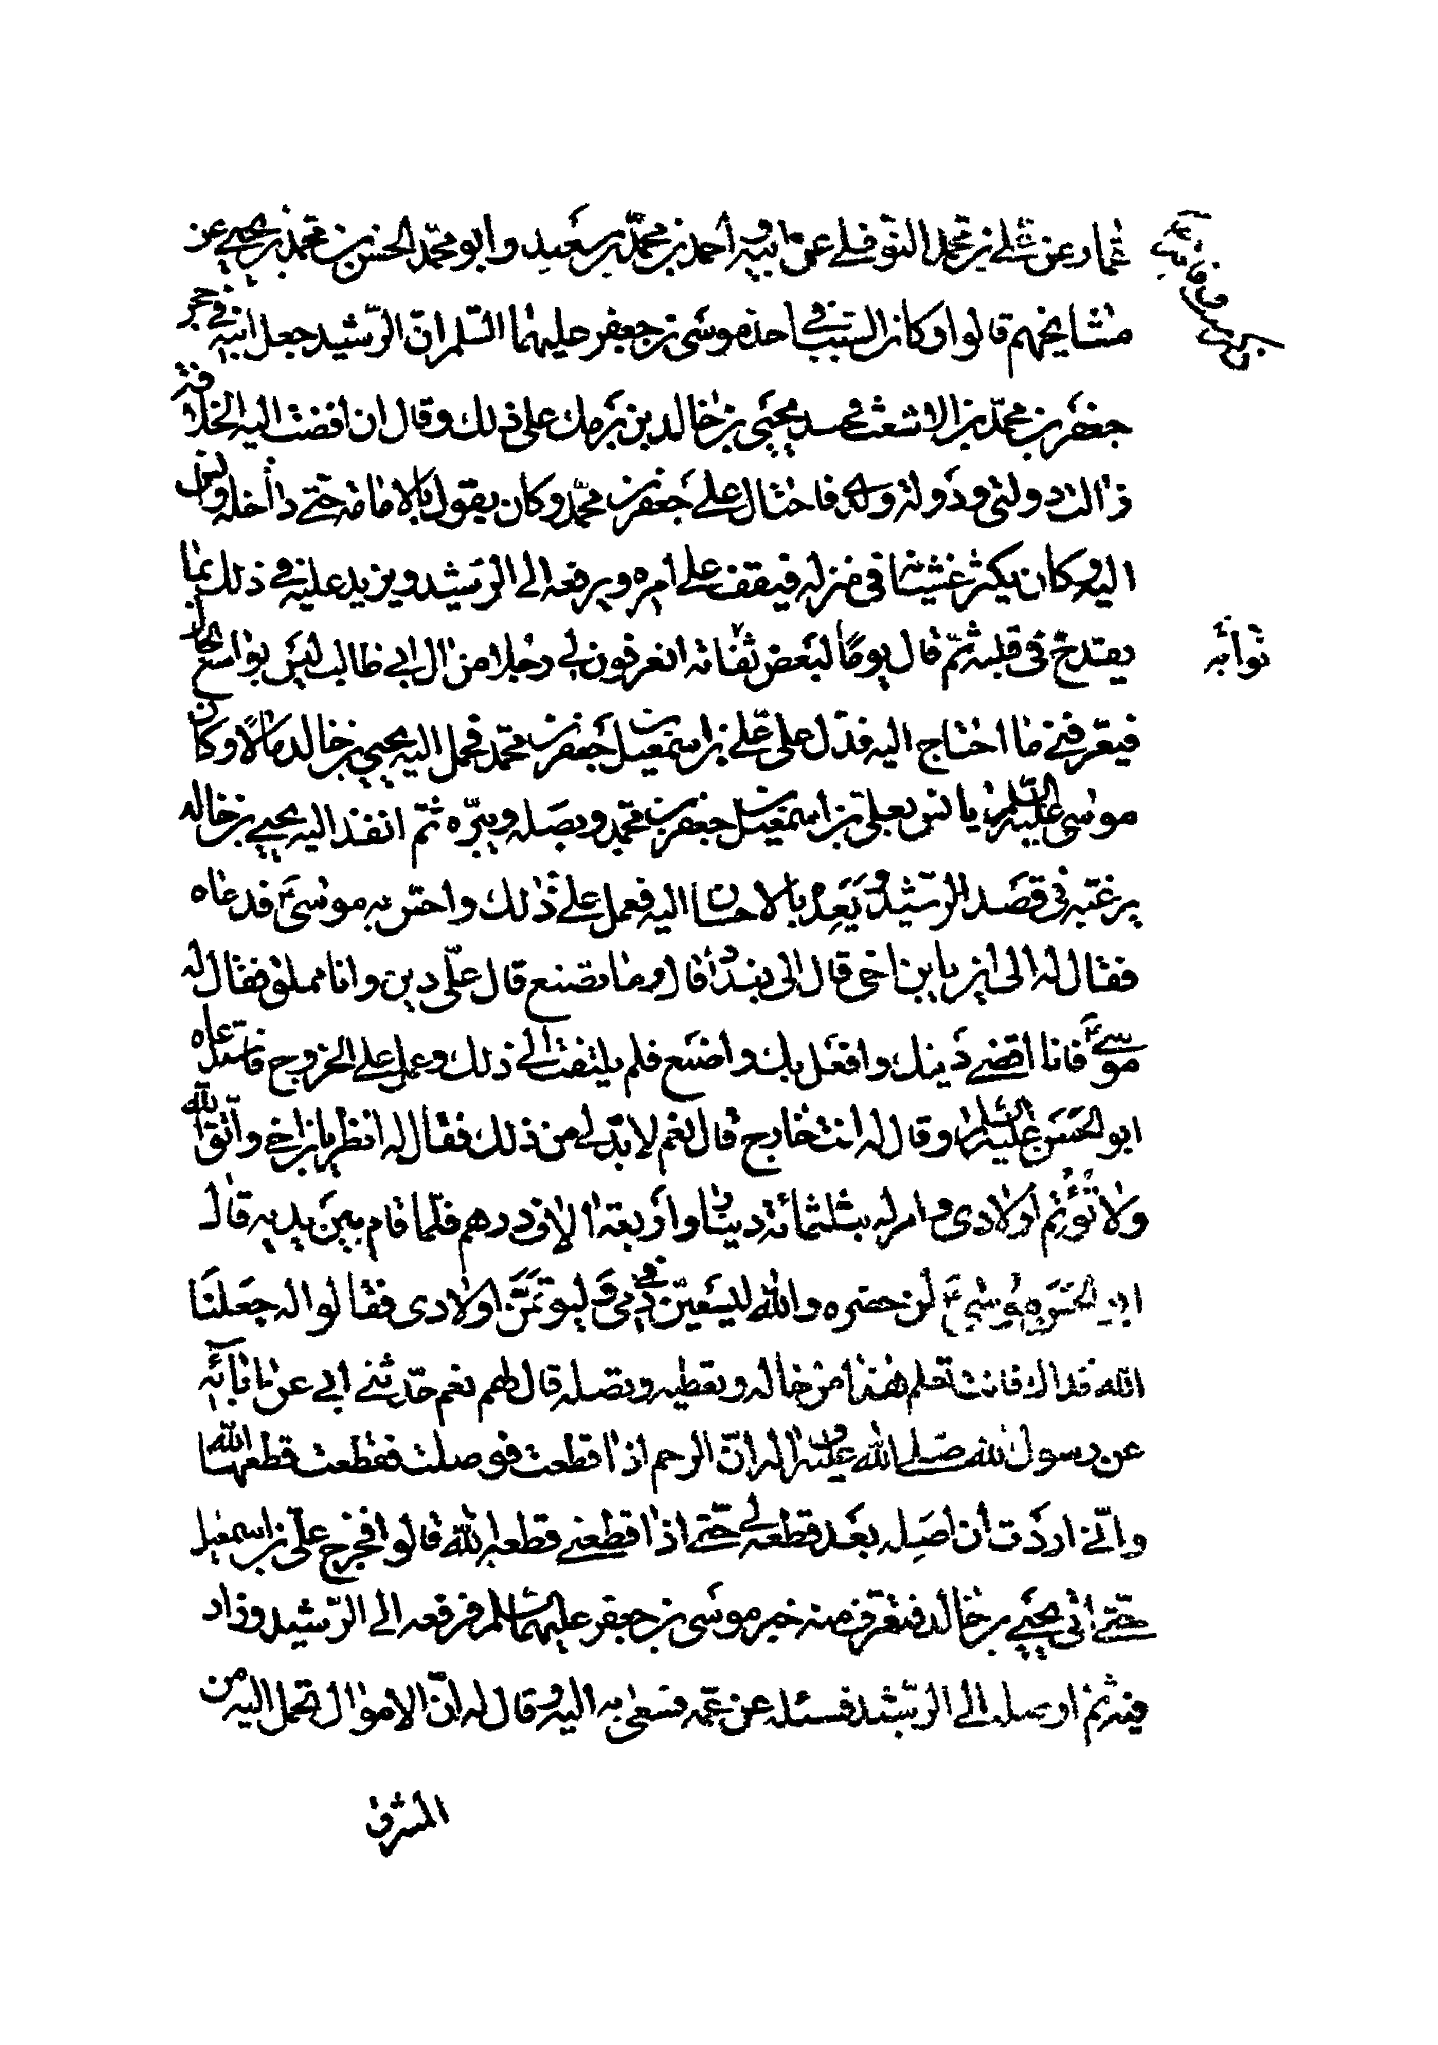 عمار عن علي بن محمد النوفلي عن ابيه و احمد بن محمد بن سعيد و ابو محمد الحسن بن محمد بن يحيى عن
مشايخهم قالوا و كان السبب في اخذ موسى بن جعفر عليهما السلم ان الرشيد جعل ابنه في حجر
جعفر بن محمد بن الاشعث فحسده يحيى بن خالد بن برمك على ذلك و قال ان افضت اليه الخلافة
زالت دولتي و دولة ولدي فاحتال على جعفر بن محمد و كان يقول بالامامة حتى داخله و انس
اليه و كان يكثر غشيانه في منزله فيقف على امره و يرفعه الى الرشيد و يزيد عليه في ذلك بما
يقدح في قلبه ثم قال يوما لبعض ثقاته اتعرفون لي رجلا من آل ابي طالب ليس بواسع الحال
فيعرفني ما احتاج اليه فدل على علي بن اسمعيل بن جعفر بن محمد فحمل اليه يحيى بن خالد مالا و كان
موسى عليه السلم يانس بعلي بن اسمعيل بن جعفر بن محمد و يصله و يبره ثم انفذ اليه يحيى بن خالد
يرغبه في قصد الرشيد و يعده بالاحسان اليه فعمل على ذلك و احس به موسى ع فدعاه
فقال له الى اين يا بن اخي قال الى بغداد قال و ما تصنع قال علي دين و انا مملق فقال له
موسى ع فانا اقضي دينك و افعل بك و اصنع فلم يلتفت الى ذلك و عمل على الخروج فاستدعاه
ابو الحسن عليه السلم و قال له انت خارج قال نعم لا بد لي من ذلك فقال له انظر يا بن اخي و اتق الله
و لا تؤتم اولادي و امر له بثلثمائة دينار و اربعة الاف درهم فلما قام بين يديه قال
ابو الحسن موسى ع لمن حضره و الله ليسعين في دمي و ليوتمن اولادي فقالوا له جعلنا
الله فداك فانت تعلم هذا من حاله و تعطيه و تصله قال لهم نعم حدثني ابي عن ابائه
عن رسول الله صلى الله عليه و اله ان الرحم اذا قطعت فوصلت فقطعت قطعها الله
و انني اردت ان اصله بعد قطعه لي حتى اذا قطعني قطعه الله قالوا فخرج علي بن اسمعيل
حتى اتى يحيى بن خالد فتعرف منه خبر موسى بن جعفر عليهما السلم فرفعه الى الرشيد و زاد
فيه ثم اوصله الى الرشيد فسئله عن عمه فسعى به اليه و قال له ان الاموال تحمل اليه من
المشرق